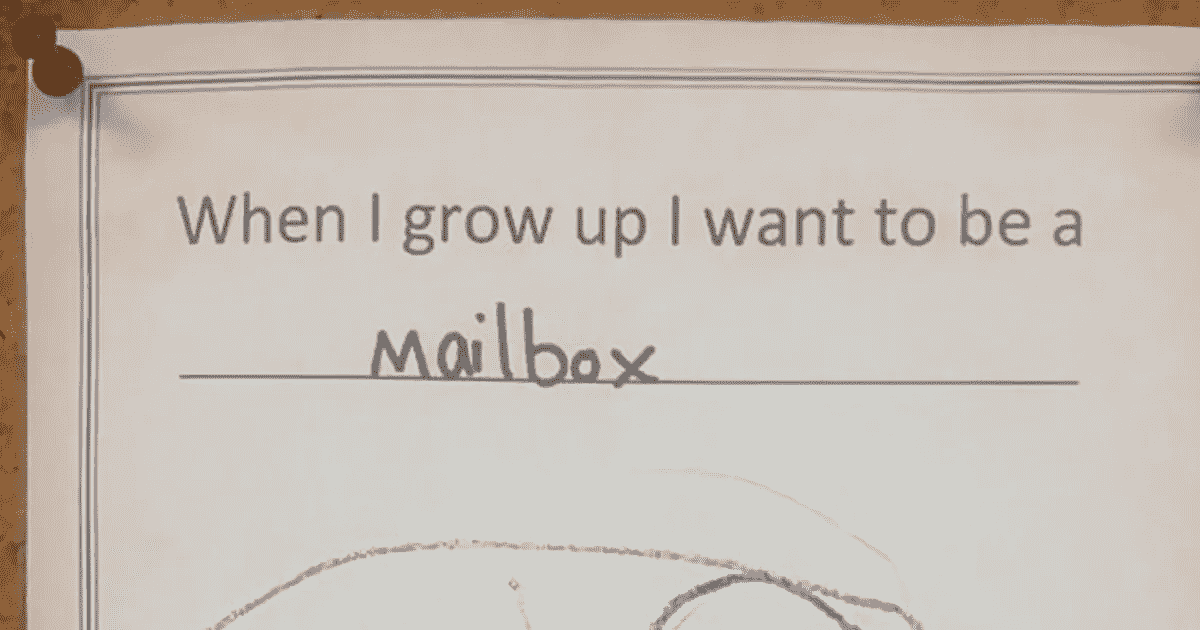 When I grow up I want to be a
Mailbox